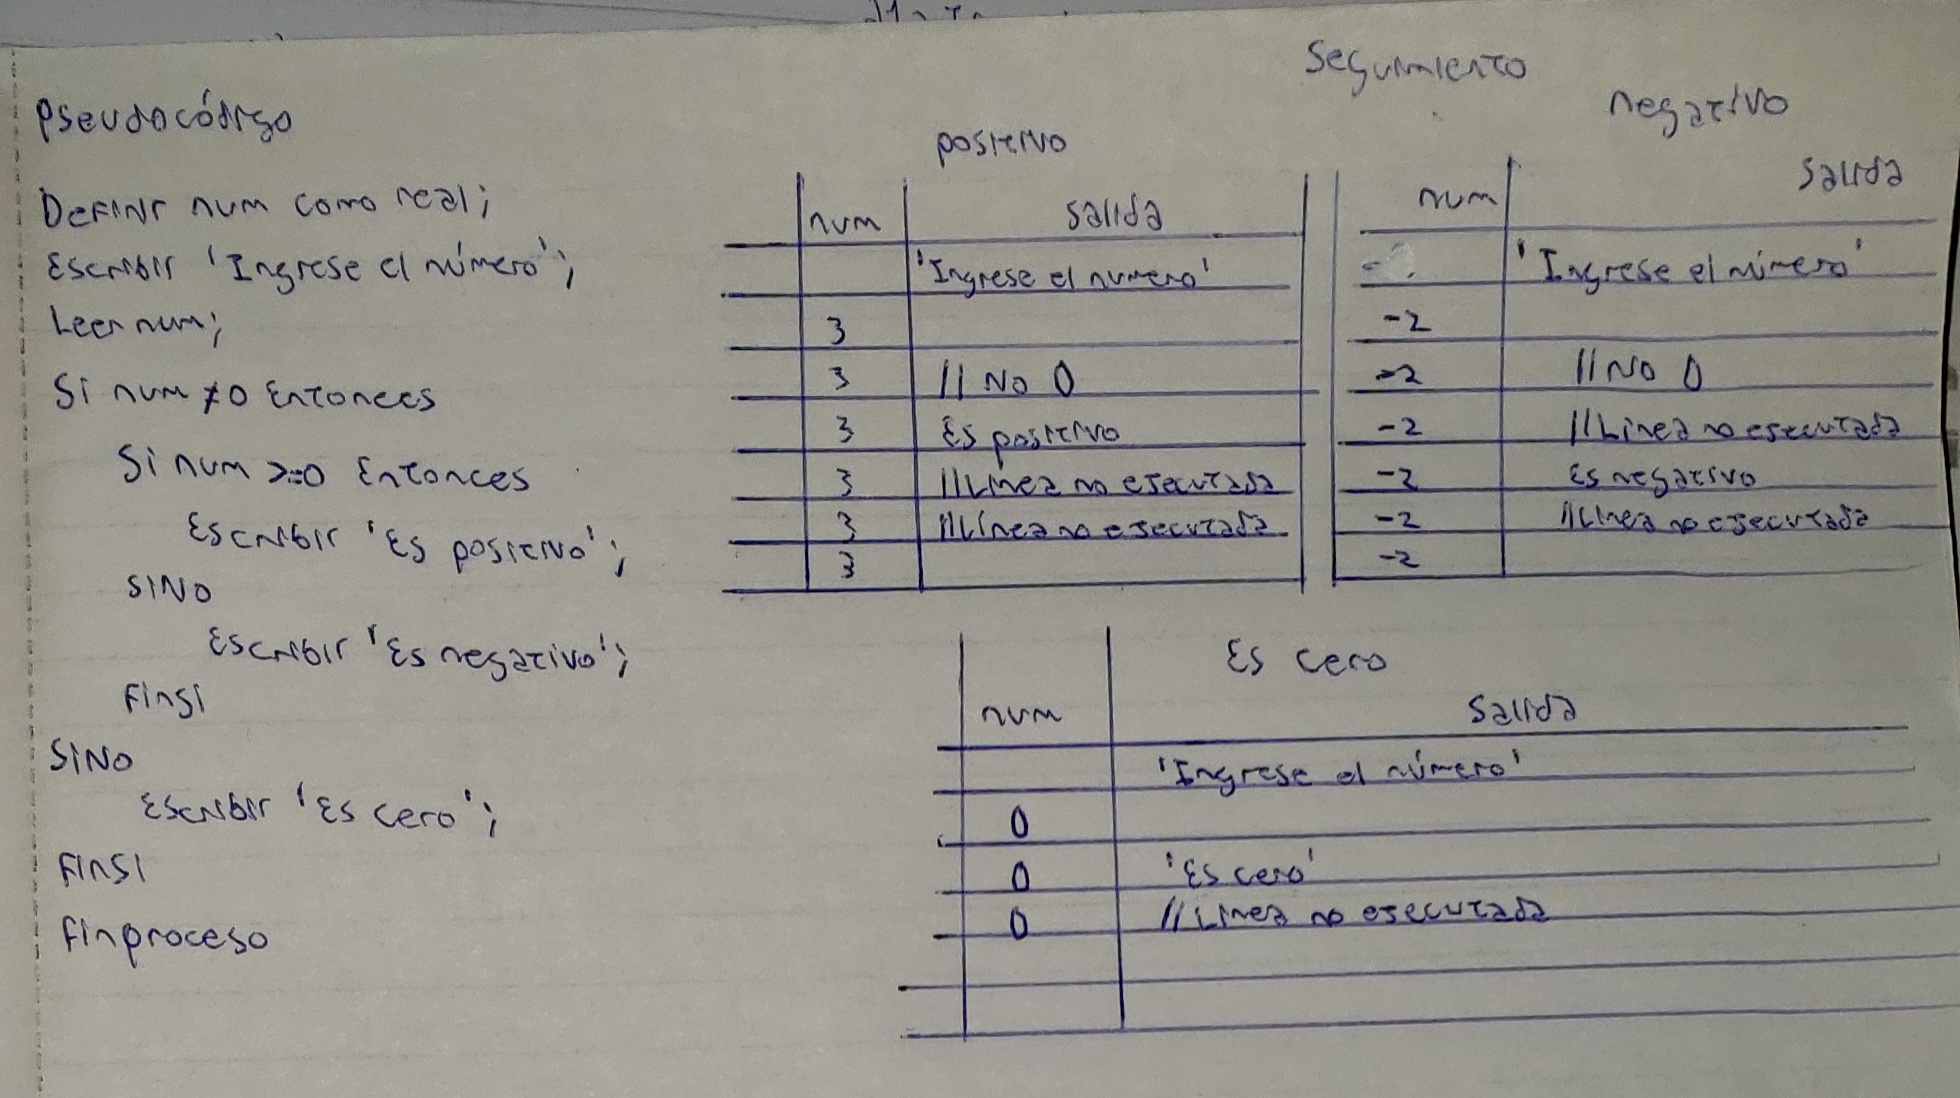 Pseudocódigo
Definir num como real;
Escribir 'Ingrese el número';
Leer num;
Si num ≠0 Entonces
Si num >=0 Entonces
Escribir 'Es positivo';
SINO
Escribir 'Es negativo';
FinSi
SINO
Escribir 'Es cero';
FinSi
Finproceso
Seguimiento
positivo
num salida
'Ingrese el numero'
3
3 //No 0
3 Es positivo
3 //Linea no ejecutada
3 //Línea no ejecutada
3
negativo
num salida
'Ingrese el número'
-2
-2 //No 0
-2 //Linea no ejecutada
-2 Es negativo
-2 //Linea no ejecutada
-2
Es cero
num salida
'Ingrese el número'
0
0 'Es cero'
0 //Linea no ejecutada